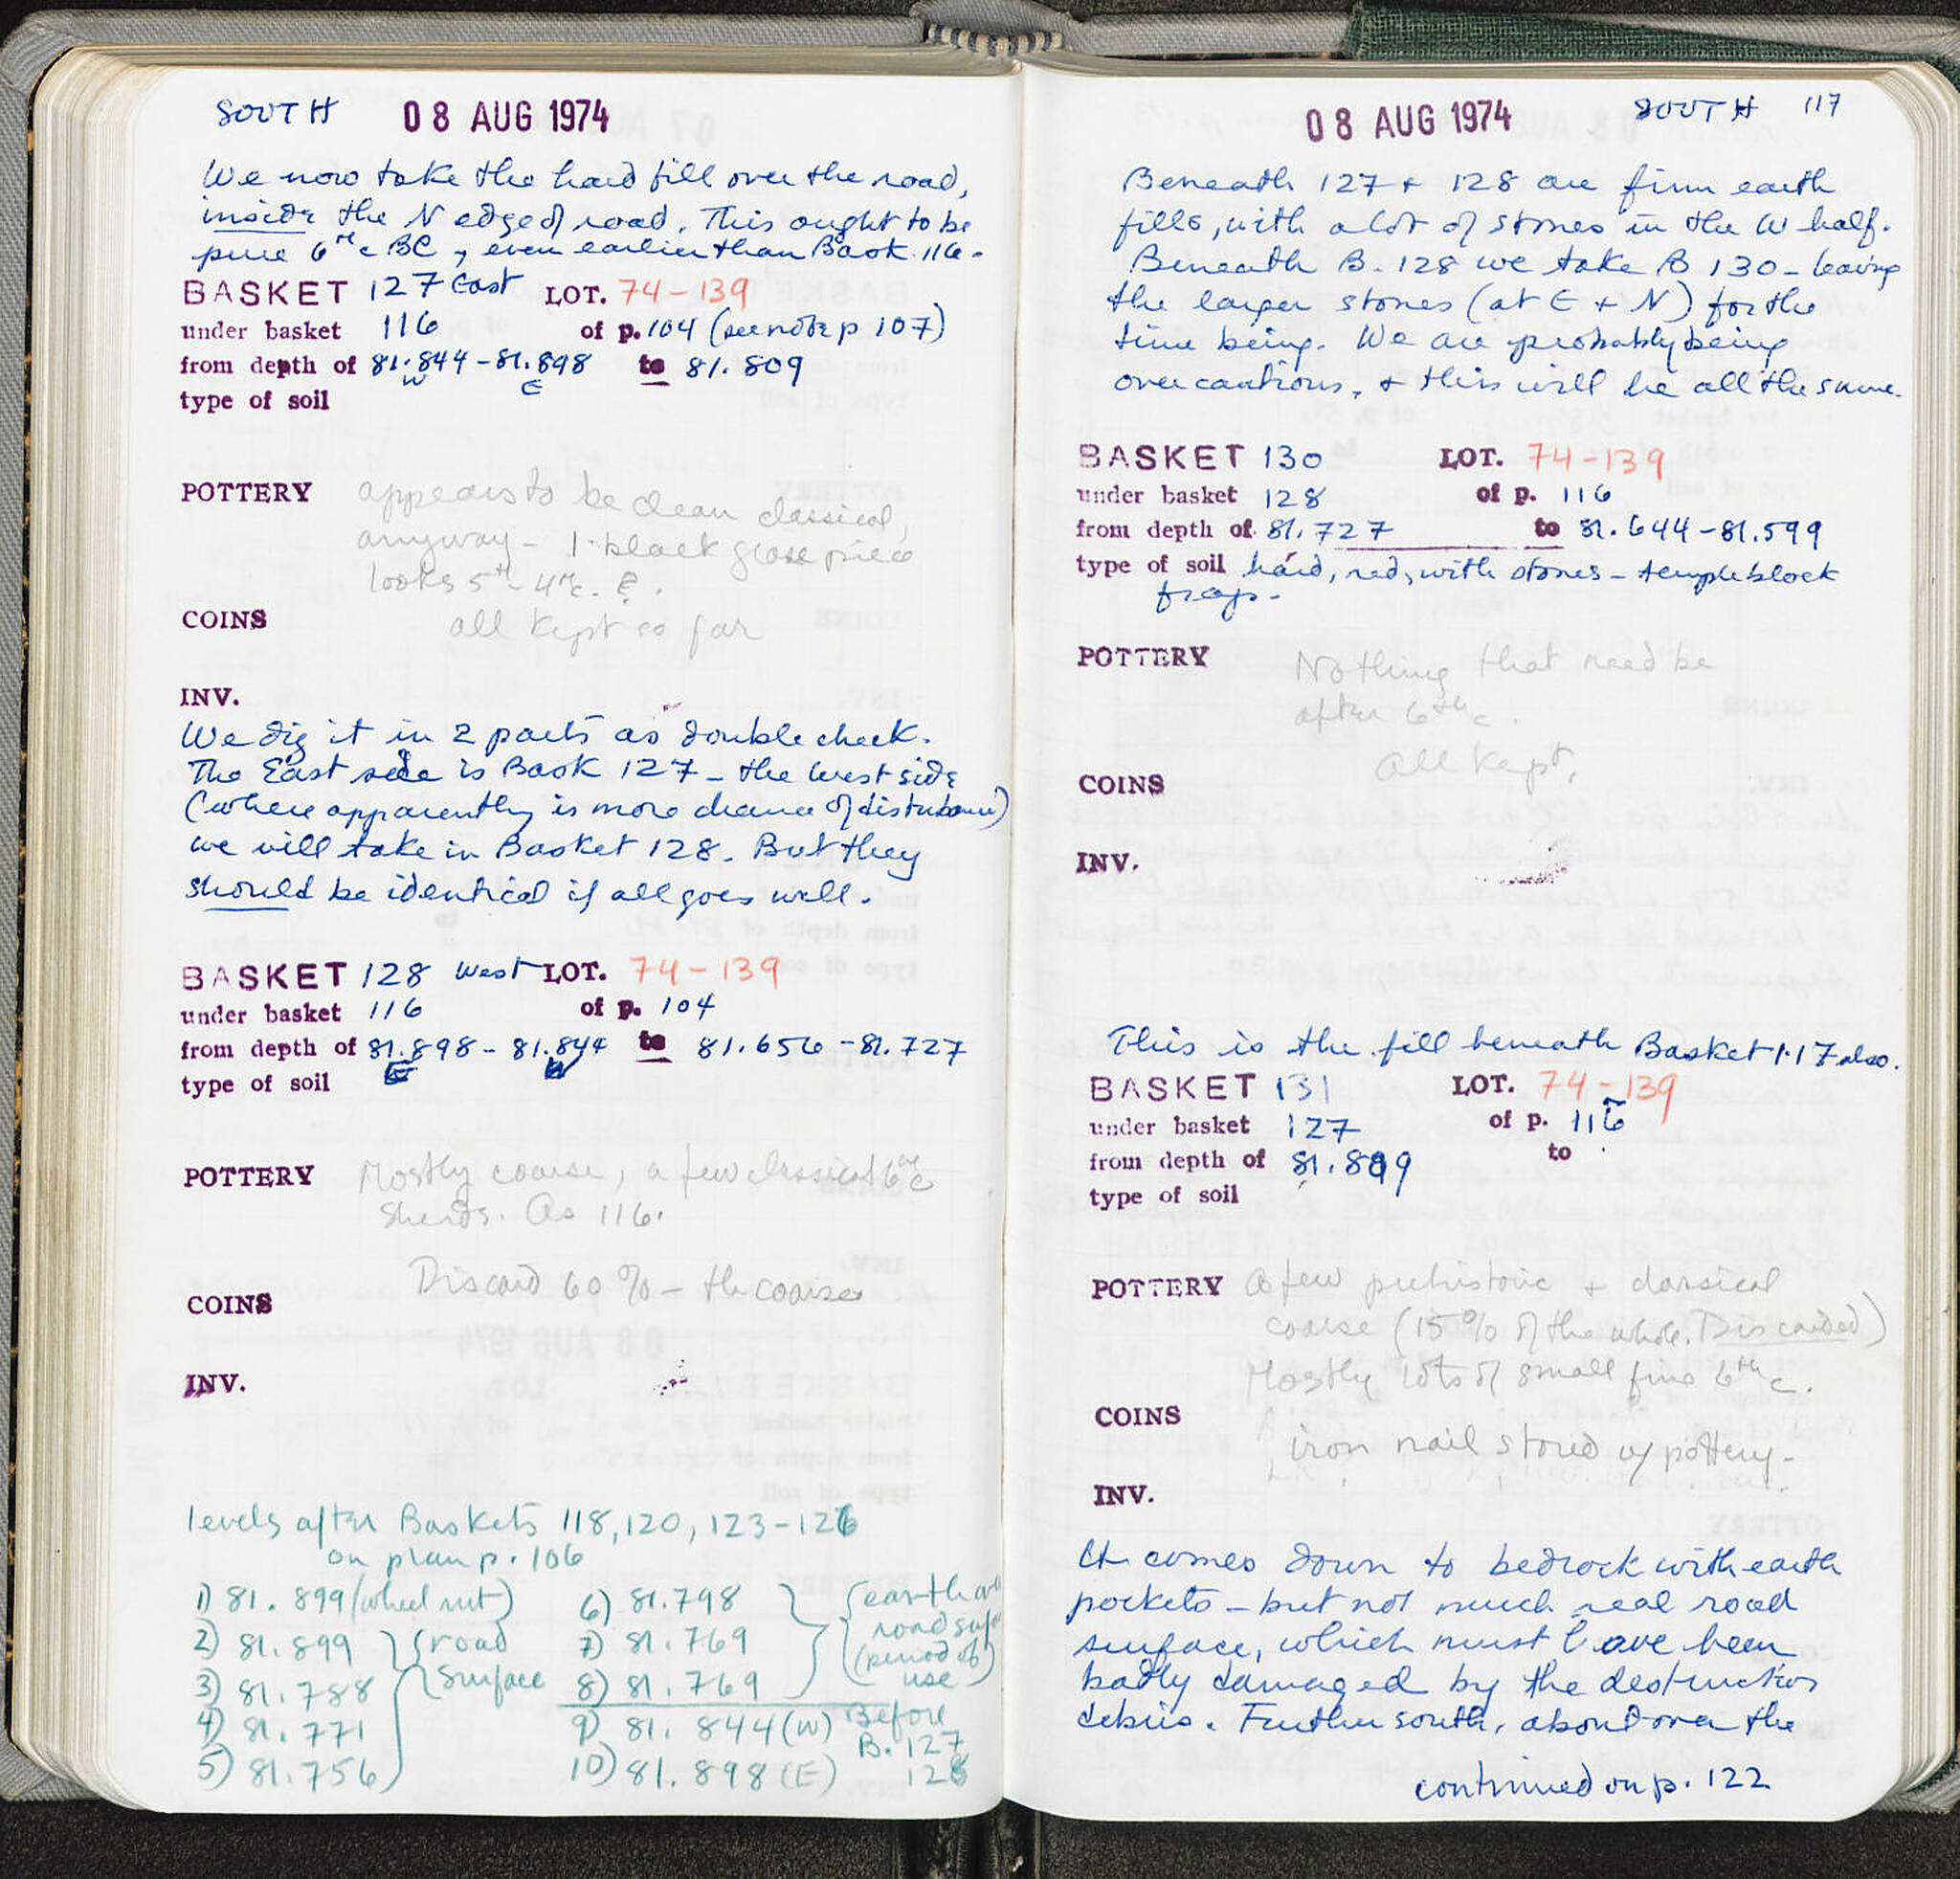 SOUTH 08 AUG 1974
We now take the hard fill over the road,
inside the N edge of road. This ought to be
pure 6th c BC, even earlier than Bask. 116.
BASKET 127 East LOT. 74-139
under basket 116 of p. 104 (see note p 107)
from depth of 81.844-81.898 to 81.809
W E
type of soil
POTTERY appears to be clean classical,
anyway - 1 black glaze piece
looks 5th-4th c. ?.
COINS all kept so far
INV.
We dig it in 2 parts as double check.
The East side is Bask 127 - the West side
(where apparently is more chance of disturbance)
we will take in Basket 128. But they
should be identical if all goes well.
BASKET 128 West LOT. 74-139
under basket 116 of p. 104
from depth of 81.898 - 81.844 to 81.656-81.727
E W
type of soil
POTTERY Mostly coarse, a few classical 6th c
sherds. As 116.
Discard 60% - the coarse
COINS
INV.
levels after Baskets 118, 120, 123-126
on plan p. 106
1) 81.899 (wheel rut) 6) 81.798 (earth
2) 81.899 (road 7) 81.769 road
3) 81.788 surface 8) 81.769 (period of use)
4) 81.771 9) 81.844 (W) Before
5) 81.756 10) 81.898 (E) B. 127
128
08 AUG 1974 SOUTH 117
Beneath 127 + 128 are firm earth
fills, with a lot of stones in the W half.
Beneath B. 128 we take B 130 - leaving
the larger stones (at E + N) for the
time being. We are probably being
over cautious, + this will be all the same.
BASKET 130 LOT. 74-139
under basket 128 of p. 116
from depth of 81.727 to 81.644-81.599
type of soil hard, red, with stones - temple block
frags.
POTTERY Nothing that need be
after 6th c.
All kept.
COINS
INV.
This is the fill beneath Basket 117 also.
BASKET 131 LOT. 74-139
under basket 127 of p. 116
from depth of 81.809 to
type of soil
POTTERY A few prehistoric + classical
coarse (15% of the whole. Discarded)
Mostly lots of small fine 6th c.
COINS
iron nail stored w/ pottery.
INV.
It comes down to bedrock with earth
pockets - but not much real road
surface, which must have been
badly damaged by the destruction
debris. Further south, about over the
continued on p. 122